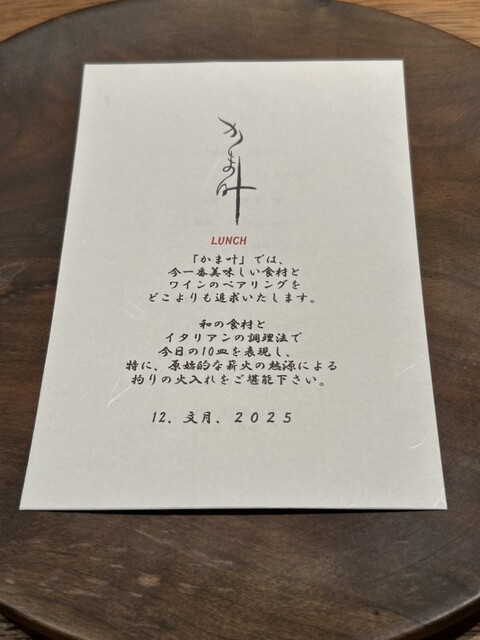 かま叶
LUNCH
「かま叶」では、
今一番美味しい食材と
ワインのペアリングを
どこよりも追求いたします。
和の食材と
イタリアンの調理法で
今日の10皿を表現し、
特に、原始的な薪火の熱源による
拘りの火入れをご堪能下さい。
12. 文月. 2025